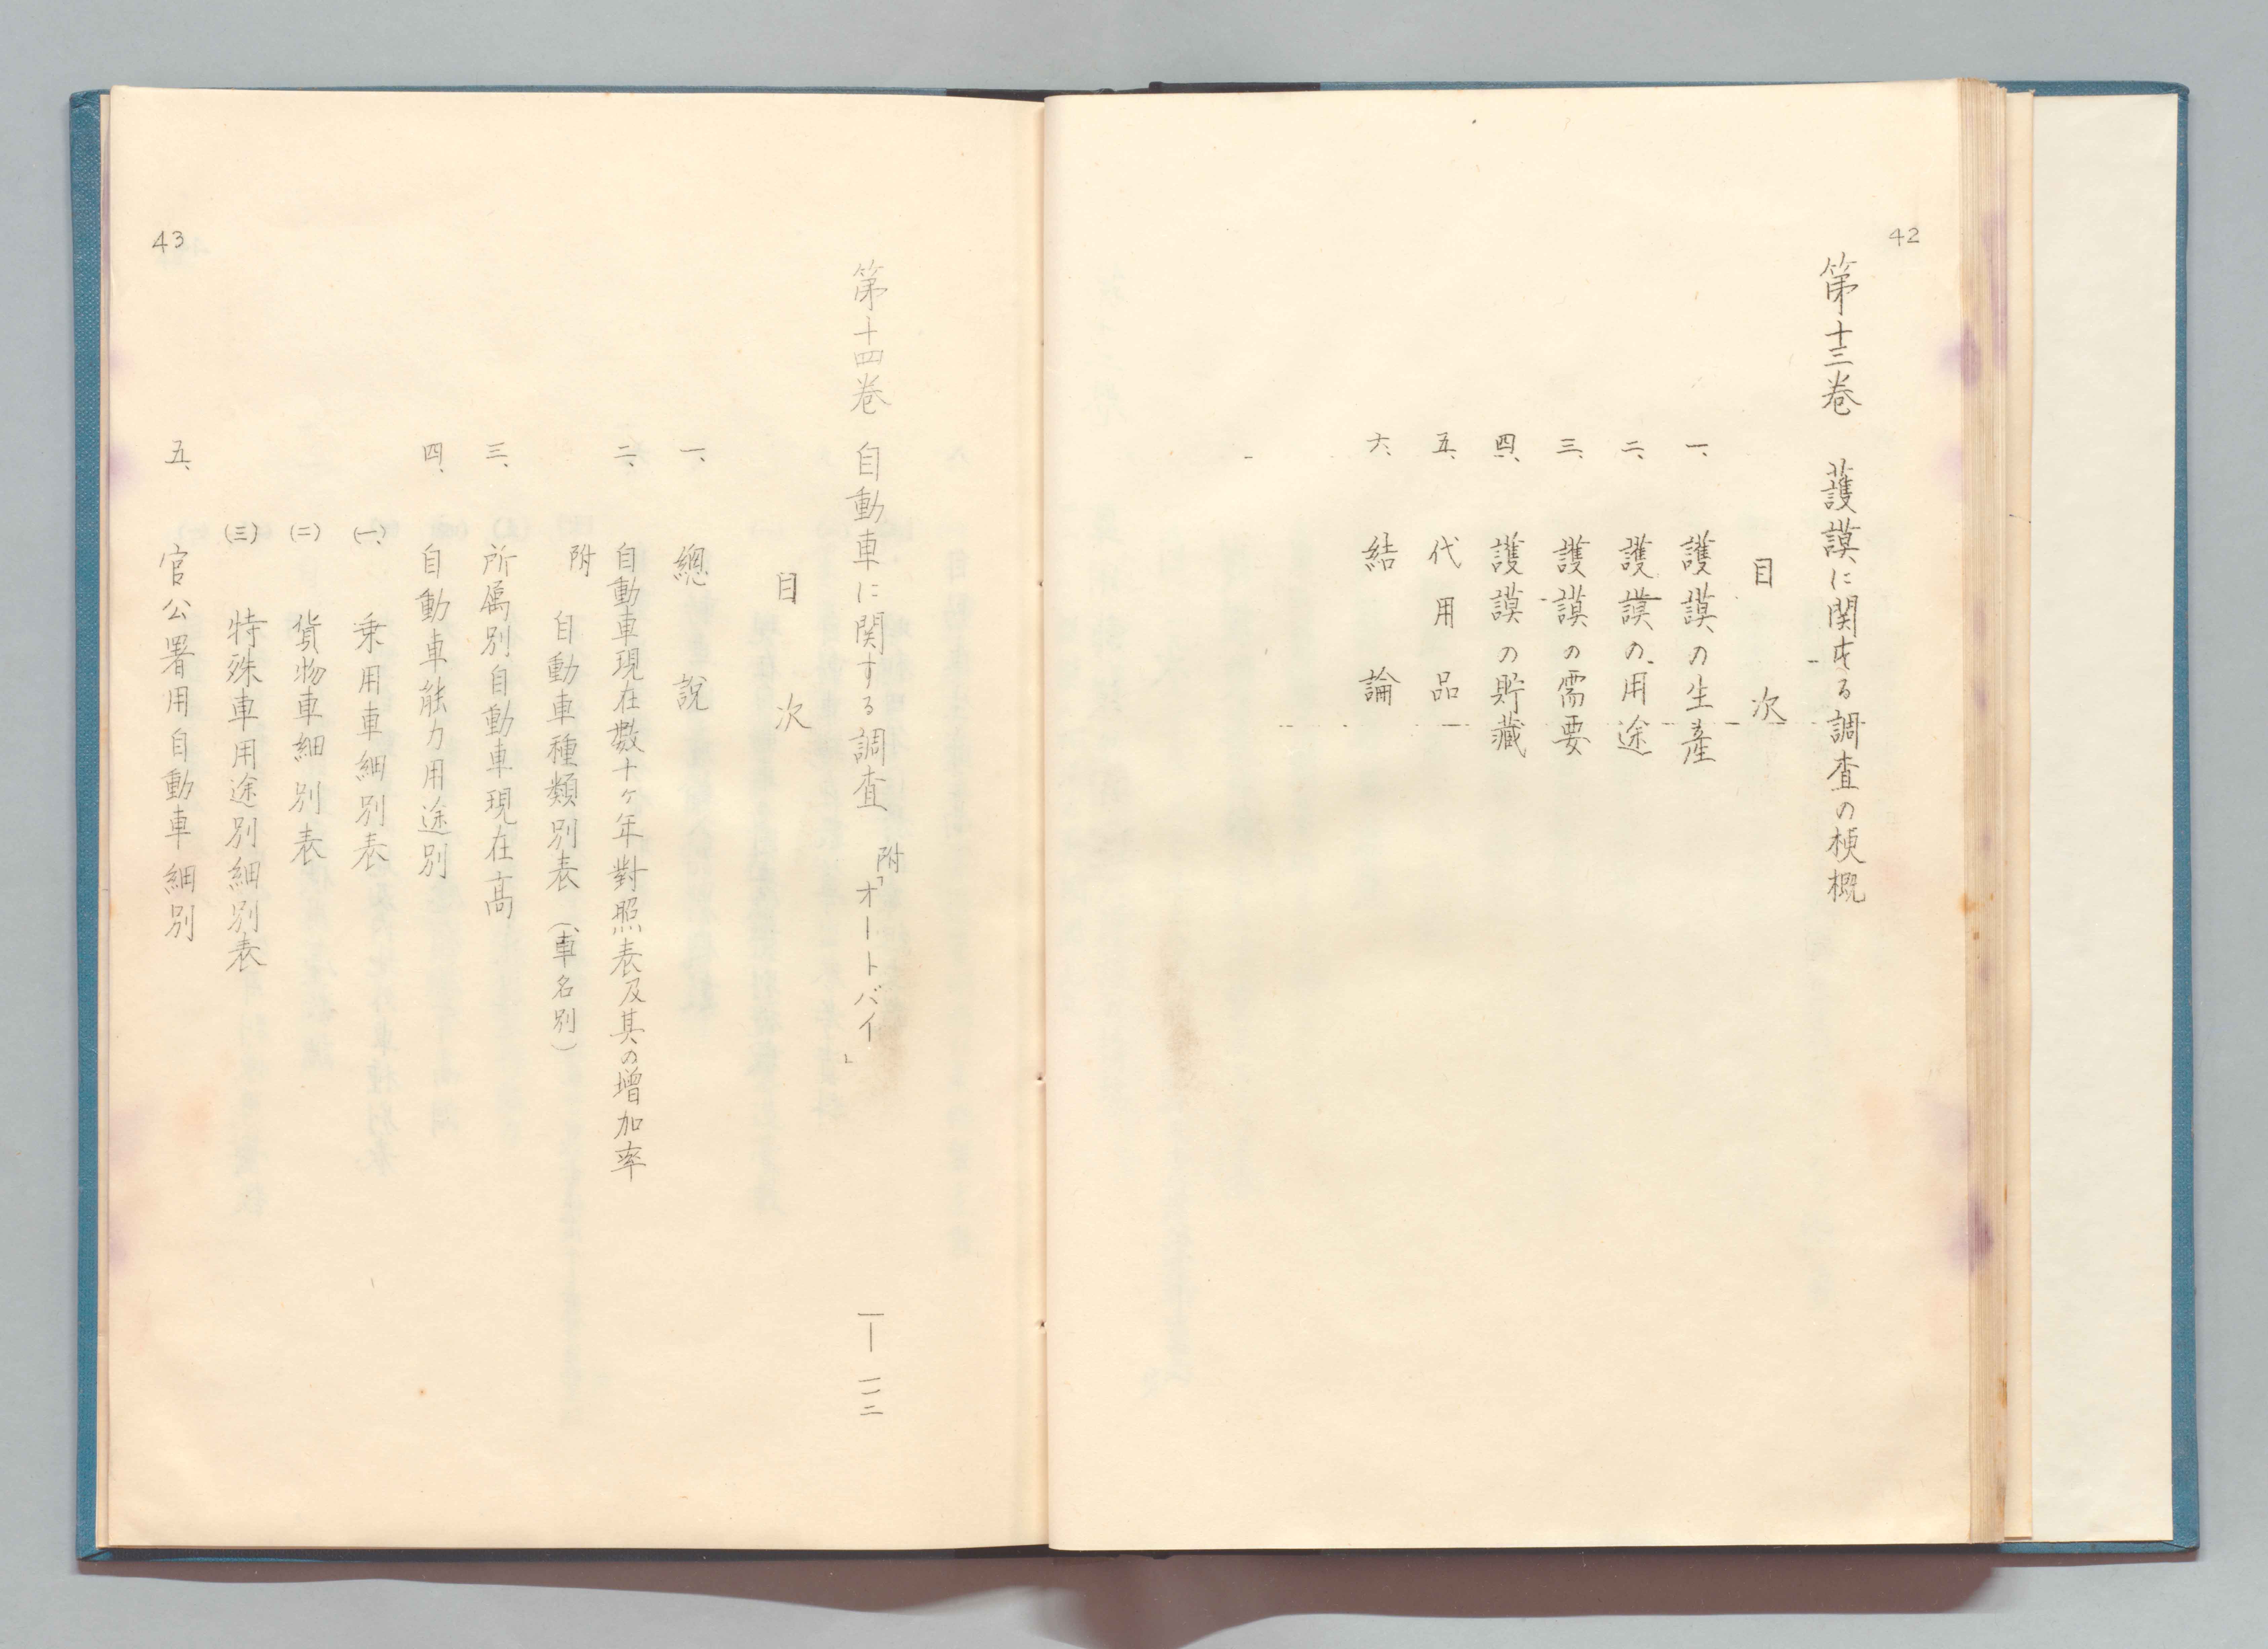 42
第十三巻 護謨に関する調査の梗概
目次
一、護謨の生産
二、護謨の用途
三、護謨の需要
四、護謨の貯藏
五、代用品
六、結論
43
第十四巻 自動車に関する調査 附「オートバイ」 一―一一二
目次
一、總說
二、自動車現在数十ヶ年對照表及其の增加率
附 自動車種類別表(車名別)
三、所属別自動車現在高
四、自動車能力用途別
(一)、乗用車細別表
(二) 貨物車細別表
(三) 特殊車用途別細別表
五、官公署用自動車細別